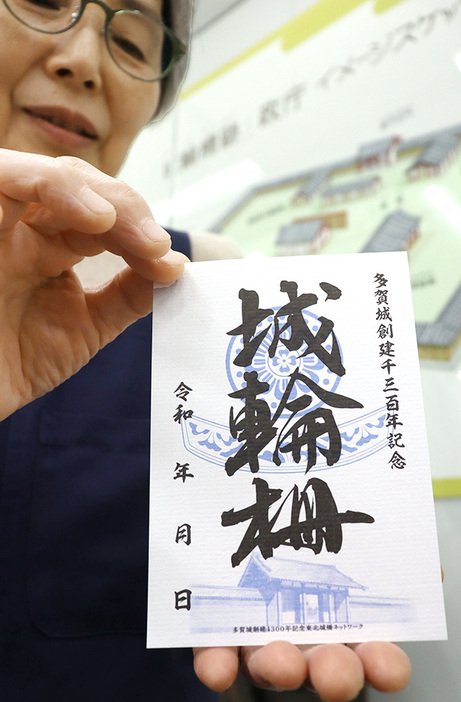 政庁 イメージスケッ
多賀城創建千三百年記念
城輪柵
令和 年 月 日
多賀城創建1300年記念東北城柵ネットワーク